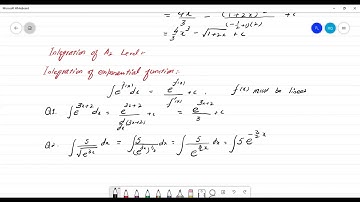 Microsoft Whiteboard
= 4x/3 - (1+2x)^½ / (-½+1)(2) + c
= 4/3 x³ - √1+2x + c
Integration of A2 Level:
Integration of exponential function:
∫e^f(x) dx = e^f(x) / f'(x) + c , f(x) must be linear
Q1. ∫e^3x+2 dx = e^3x+2 / d/dx(3x+2) + c = e^3x+2 / 3 + c
Q2. ∫ 5/√e^3x dx = ∫ 5/(e^3x)^1/2 dx = ∫ 5/e^3/2x dx = ∫5 e^-3/2x